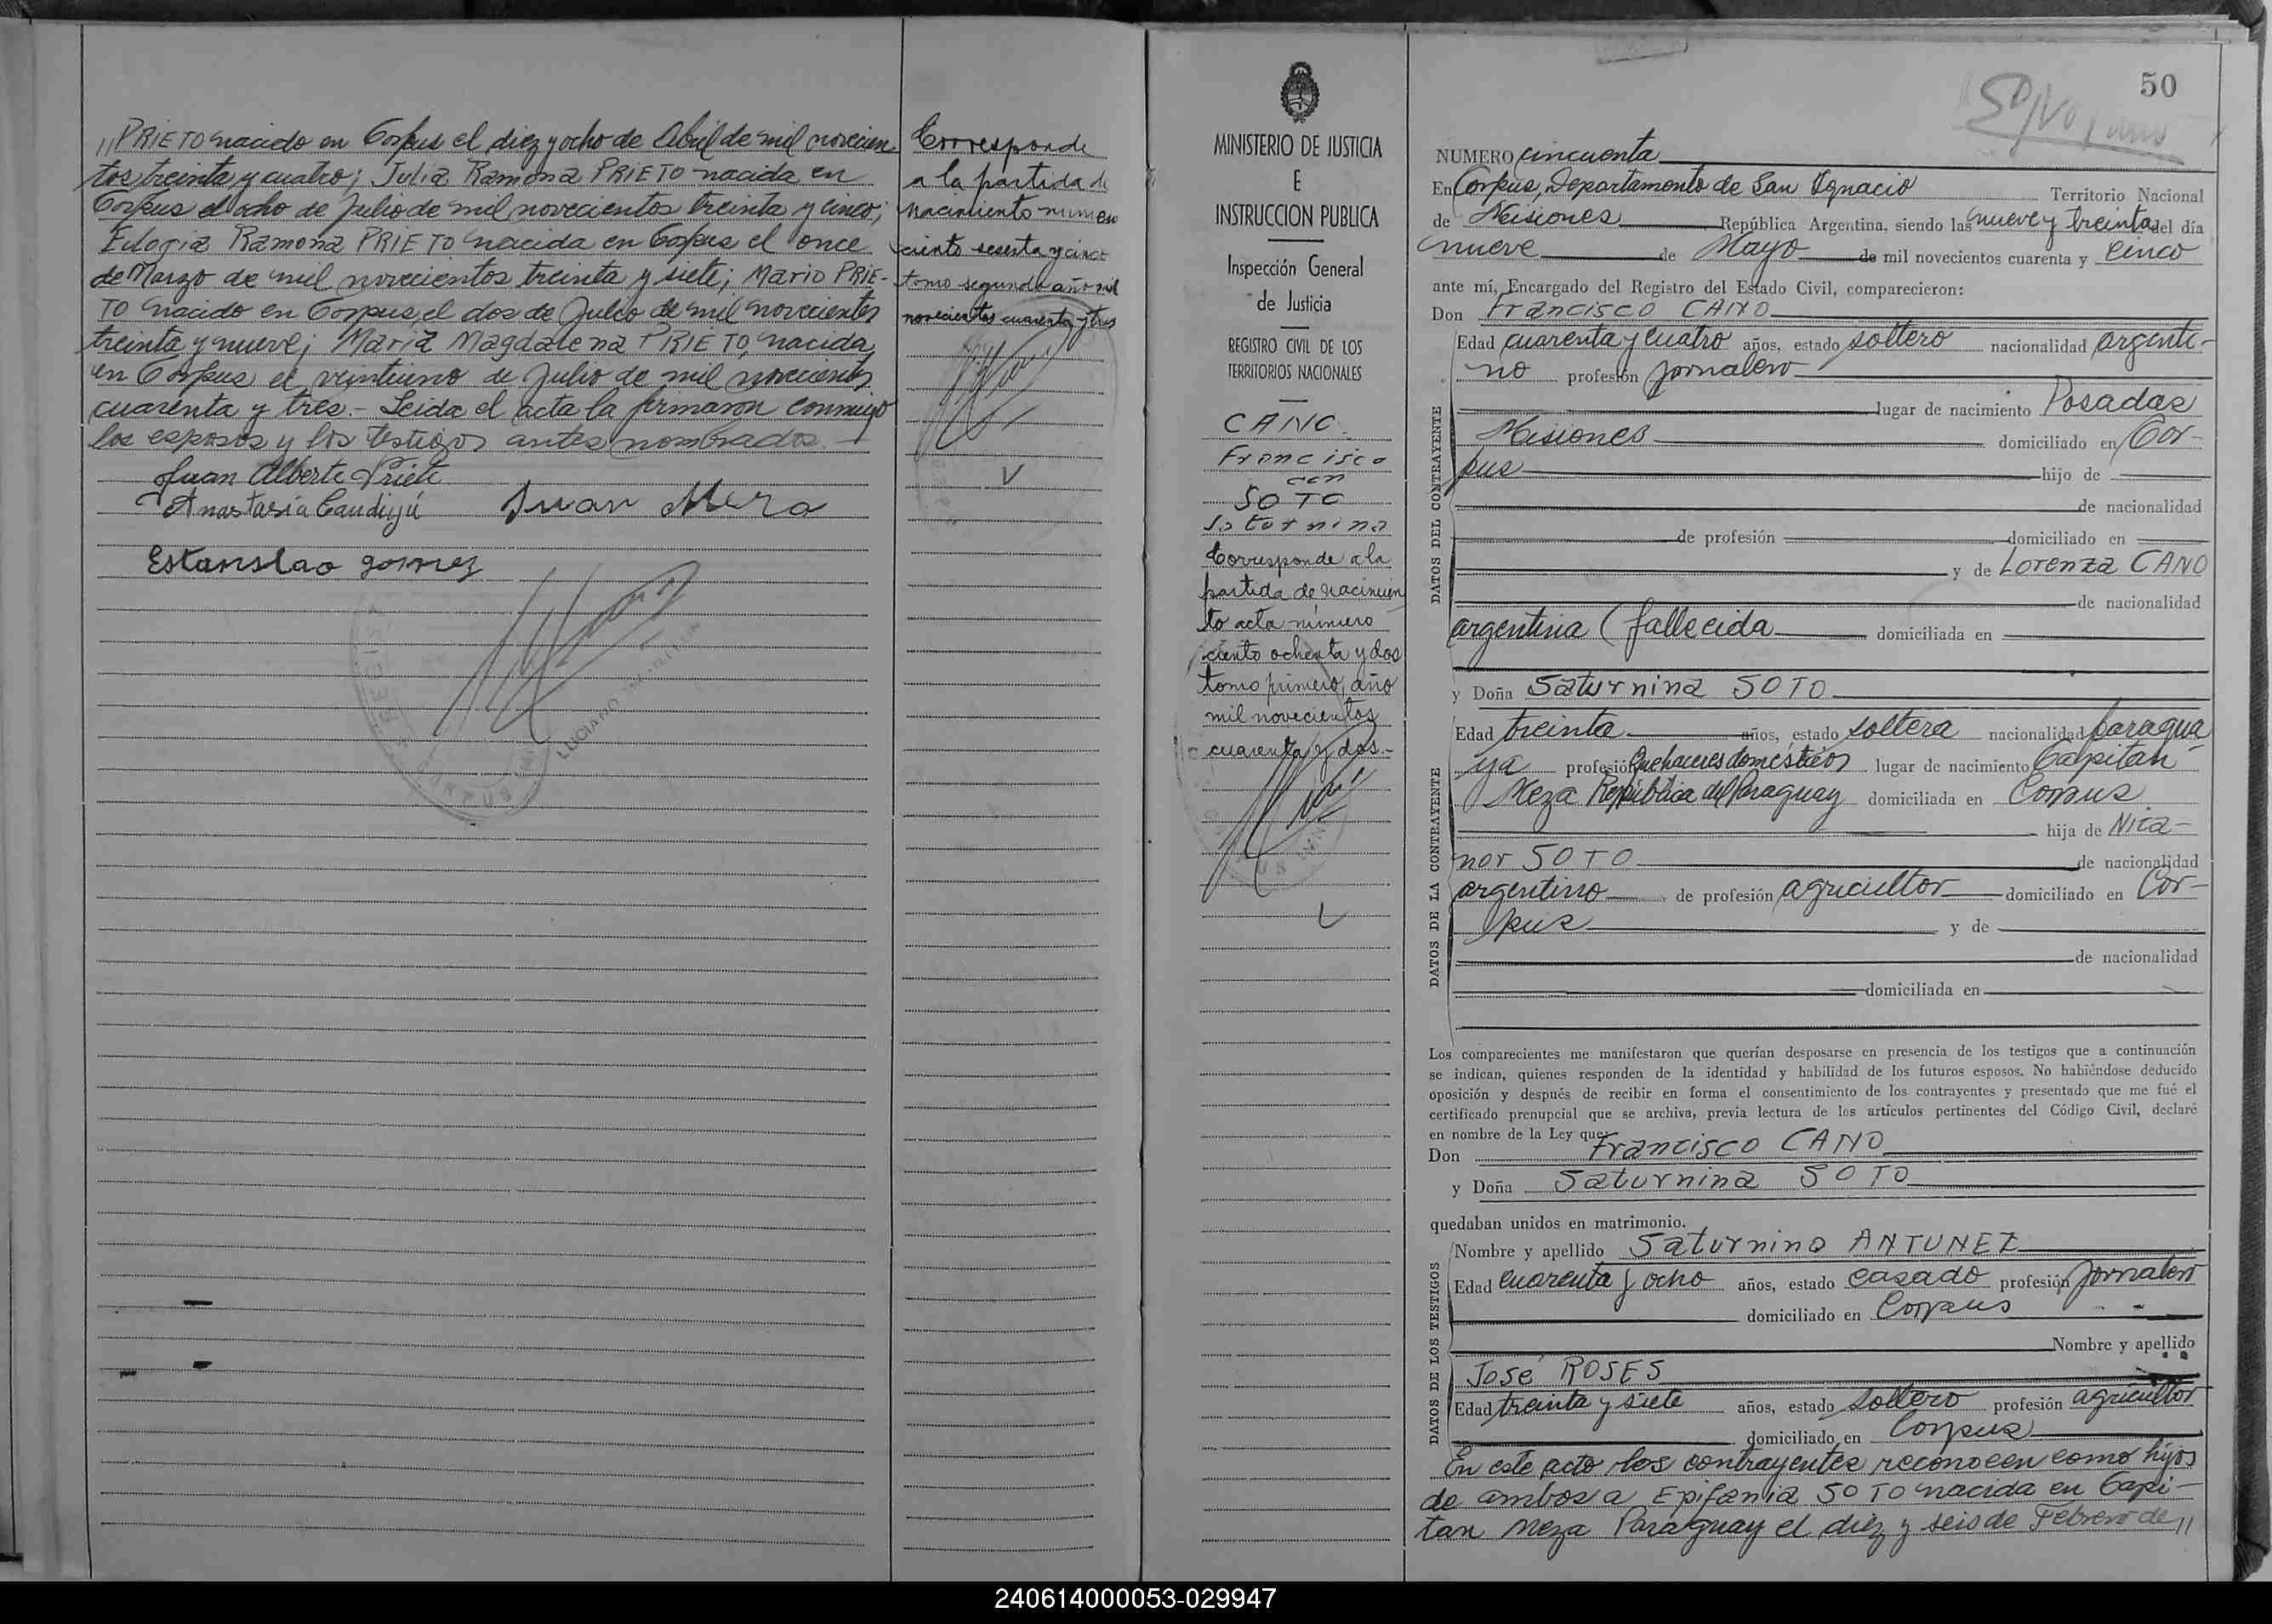 " PRIETO nacido en Corpus el diez y ocho de Abril de mil novecien
tos treinta y cuatro; Julia Ramona PRIETO nacida en
Corpus el ocho de Julio de mil novecientos treinta y cinco;
Eulogia Ramona PRIETO nacida en Corpus el once
de Marzo de mil novecientos treinta y siete; Mario PRIE-
TO nacido en Corpus, el dos de Julio de mil novecientos
treinta y nueve; María Magdalena PRIETO, nacida
en Corpus el veintiuno de Julio de mil novecientos
cuarenta y tres.- Leida el acta la firmaron conmigo
los esposos y los testigos antes nombrados.-
Juan Alberto Prieto
Anastasia Canduyú Juan Mera
Estanslao gomez
LUCIANO
CORPUS
Corresponde
a la partida de
Nacimiento numero
ciento sesenta y cinco
tomo segundo año mil
novecientos cuarenta y tres
MINISTERIO DE JUSTICIA
E
INSTRUCCION PUBLICA
Inspección General
de Justicia
REGISTRO CIVIL DE LOS
TERRITORIOS NACIONALES
CANO
Francisco
con
SOTO
Saturnina
Corresponde a la
partida de nacimien
to acta número
ciento ochenta y dos
tomo primero, año
mil novecientos
cuarenta y dos.-
50
NUMERO cincuenta
En Corpus, Departamento de San Ignacio Territorio Nacional
de Misiones República Argentina, siendo las nueve y treinta del día
nueve de Mayo de mil novecientos cuarenta y cinco
ante mí, Encargado del Registro del Estado Civil, comparecieron:
Don Francisco CANO
DATOS DEL CONTRAYENTE
Edad cuarenta y cuatro años, estado soltero nacionalidad argenti-
no profesión jornalero
lugar de nacimiento Posadas
Misiones domiciliado en Cor-
pus hijo de
de nacionalidad
de profesión domiciliado en
y de Lorenza CANO
de nacionalidad
argentina (fallecida domiciliada en
y Doña Saturnina SOTO
DATOS DE LA CONTRAYENTE
Edad treinta años, estado soltera nacionalidad paragua
ya profesión Quehaceres domésticos lugar de nacimiento Capitán
Meza República del Paraguay domiciliada en Corpus
hija de Nica-
nor SOTO de nacionalidad
argentino de profesión agricultor domiciliado en Cor-
pus y de
de nacionalidad
domiciliada en
Los comparecientes me manifestaron que querían desposarse en presencia de los testigos que a continuación
se indican, quienes responden de la identidad y habilidad de los futuros esposos. No habiéndose deducido
oposición y después de recibir en forma el consentimiento de los contrayentes y presentado que me fué el
certificado prenupcial que se archiva, previa lectura de los artículos pertinentes del Código Civil, declaré
en nombre de la Ley que:
Don Francisco CANO
y Doña Saturnina SOTO
quedaban unidos en matrimonio.
DATOS DE LOS TESTIGOS
Nombre y apellido Saturnino ANTUNEZ
Edad cuarenta y ocho años, estado casado profesión jornalero
domiciliado en Corpus
Nombre y apellido
José ROSES
Edad treinta y siete años, estado soltero profesión agricultor
domiciliado en Corpus
En este acto los contrayentes reconocen como hijos
de ambos a Epifania SOTO nacida en Capi-
tan Meza Paraguay el diez y seis de Febrero de "
240614000053-029947